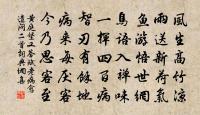 風生高竹凉
雨送新荷氣
魚游悟世網
鳥語入禪味
一揮四百病
智刃有餘地
病來每厭客
今乃思客至
黄庭堅又答斌老病愈
遣悶二首詞典網